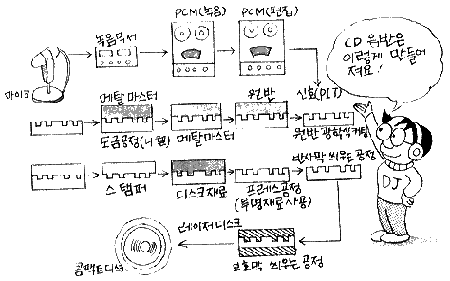 PCM(녹음)
PCM(편집)
녹음믹서
CD 원반은
이렇게 만들어
져요!
마이크
메탈 마스터
원반
신호(PIT)
도금공정(니켈)
메탈마스터
원반 광학적커팅
반사막 씌우는 공정
스탬퍼
디스크재료
프레스공정
(투명재료사용)
DJ
레이저디스크
콤팩트디스크
보호막 씌우는 공정